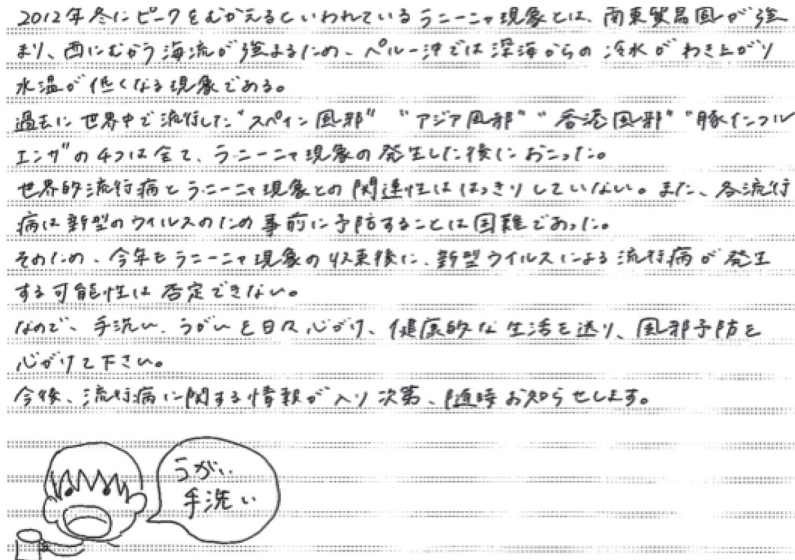 2012年冬にピークをむかえるといわれているラニーニャ現象とは、南東貿易風が強
まり、西にむかう海流が強まるため、ペルー沖では深海からの冷水がわき上がり
水温が低くなる現象である。
過去に世界中で流行した"スペイン風邪" "アジア風邪" "香港風邪" "豚インフル
エンザ"の4つは全て、ラニーニャ現象の発生した後におこった。
世界的流行病とラニーニャ現象との関連性ははっきりしていない。また、各流行
病は新型のウイルスのため事前に予防することは困難であった。
そのため、今年もラニーニャ現象の収束後に、新型ウイルスによる流行病が発生
する可能性は否定できない。
なので、手洗い、うがいを日々心がけ、健康的な生活を送り、風邪予防を
心がけて下さい。
今後、流行病に関する情報が入り次第、随時お知らせします。
うがい
手洗い